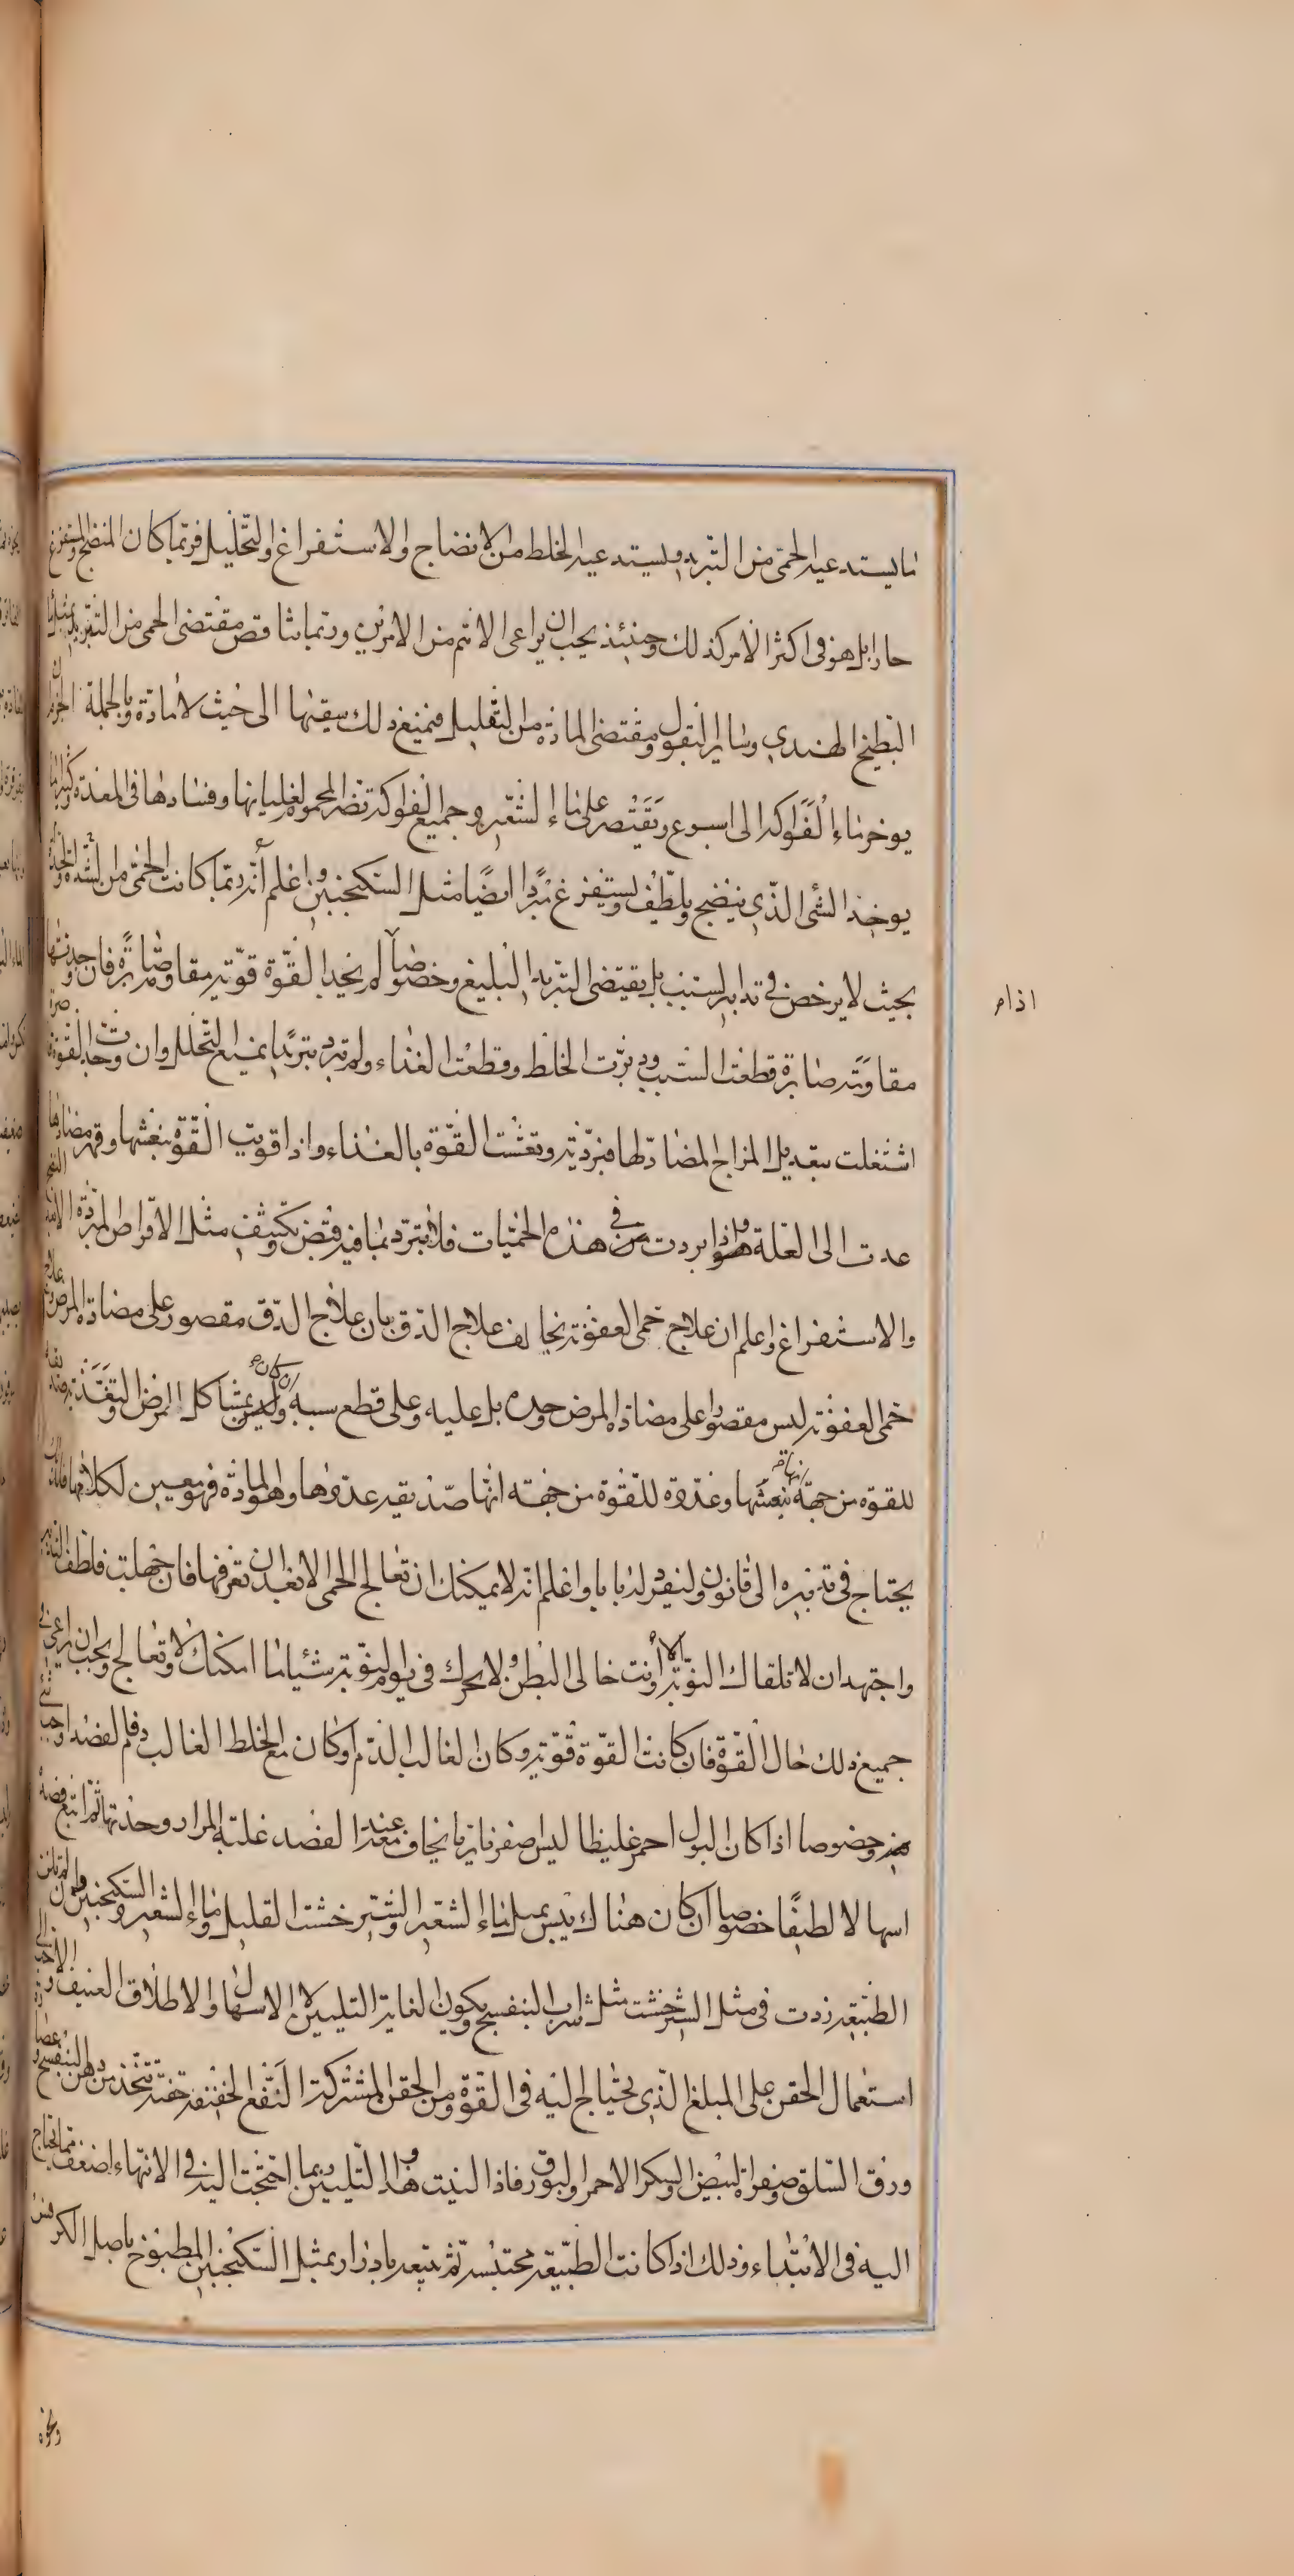 ما يستدعيه الحمى من التبريد وما يستدعيه الخلط من الانضاج والاستفراغ والتحليل فربما كان المنضج والمستفرغ
حارا بل هو فى اكثر الامر كذلك وحينئذ يجب ان يراعى الاهم من الامرين وربما تناقص مقتضى الحمى من التبريد بمثل ماء
البطيخ الهندي وساير البقول ومقتضى المادة من التقليل فيمنع ذلك سقيها الى حيث لا مادة وبالجملة
يوخر ماء الفواكه الى اسبوع ويقتصر على ماء الشعير وجميع الفواكه تضر المحموم لغليانها وفسادها فى المعدة وكثيرا ما
يوخذ الشى الذي ينضج ويلطف ويستفرغ مبردا ايضا مثل السكنجبين واعلم أنه ربما كانت الحمى من الشدة والحدة
بحيث لا يرخص في تدابير السبب بل يقتضى التبريد البليغ وخصوصا اذا لم يجد القوة قوية مقاومة صابرة فان وجدتها
مقاومة صابرة قطعت السبب ودبرت الخلط وقطعت الغذاء ولم تبرد تبريدا يمنع التحلل وان وجدت القوة
اشتغلت بتعديل المزاج المضاد لها فبردته ونعشت القوة بالغذاء واذا قويت القوة بنعشها وقهر مضادها
عدت الى العلة واذا بردت فى هذه الحميات فلا تبرد بما فيه قبض وتكثيف مثل الاقراص المبردة الا بعد
والاستفراغ واعلم ان علاج حمى العفونة يخالف علاج الدق بان علاج الدق مقصور على مضادة المرض وعلاج
حمى العفونة ليس مقصورا على مضادة المرض وحده بل عليه وعلى قطع سببه وان كان بمشاكل المرض والتغذية صديقة
للقوة من جهة نعشها وعدوة للقوة من جهة انها صديقة عدوها وهو المادة فهو معين لكلاهما فلذلك
يحتاج فى تدبيره الى قانون ولنفرد له بابا واعلم انه لا يمكنك ان تعالج الحمى الا بعد ان تعرفها فان جهلت فلطف التدبير
واجتهد ان لا تلقاك النوبة الا وانت خالى البطن ولا تحرك فى يوم النوبة شيئا ما امكنك ولا تعالج ويجب ان يراعى فى
جميع ذلك حال القوة فان كانت القوة قوية وكان الغالب الدم او كان مع الخلط الغالب دم فالفصد اوجب شئ
منه وخصوصا اذا كان البول احمر غليظا ليس اصفر ناريا يخاف عند الفصد غلبة المرار وحدتها ثم اتبع فصده
اسهالا لطيفا خصوصا ان كان هناك يبس بمثل ماء الشعير والشيرخشت القليل وماء الشعير والسكنجبين فان لم تلن
الطبيعة زدت فى مثل الشيرخشت مثل شراب البنفسج ويكون الغاية التليين لا الاسهال والاطلاق العنيف والاحب الى
استعمال الحقن على المبلغ الذي يحتاج اليه فى القوة ومن الحقن المشتركة النفع الخفيفة حقنة تتخذ من دهن البنفسج وعصارة
ورق السلق وصفرة البيض والسكر الاحمر والبورق فاذا لينت هذا التليين فربما احتجت اليه فى الانتهاء اضعف مما تحتاج
اليه فى الابتداء وذلك اذا كانت الطبيعة محتبسة ثم تتبعه بادرار بمثل السكنجبين المطبوخ باصل الكرفس
ونحوه
اذا م